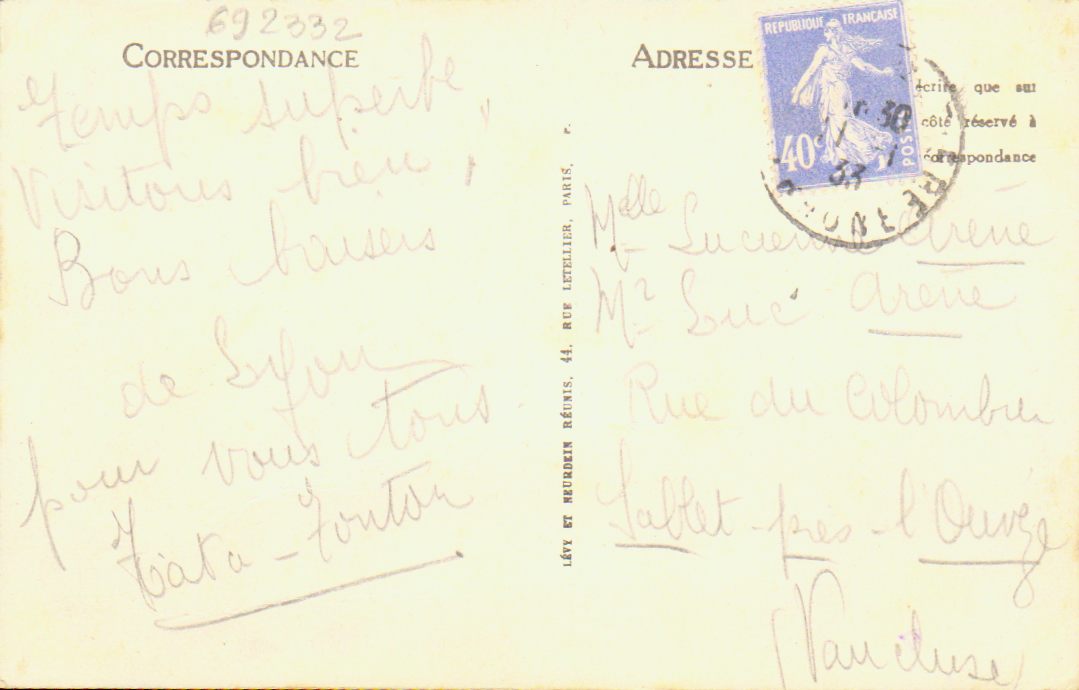 692332
CORRESPONDANCE
Temps superbe,
Visitons bien,
Bons baisers
de Lyon
pour vous tous
Tata - Tonton
LÉVY ET NEURDEIN RÉUNIS, 44, RUE LETELLIER, PARIS.
ADRESSE
REPUBLIQUE FRANÇAISE
40c
POSTES
30
11 - 1
33
écrite que sur
côté réservé à
correspondance
Melle Lucienne Arène
Mr Luc Arène
Rue du Colombier
Sablet - près - l'Ouvèze
(Vaucluse)